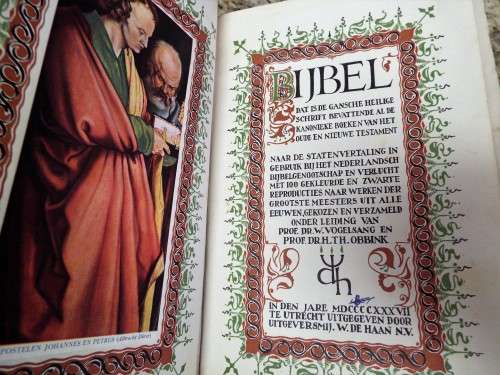 POSTELEN JOHANNES EN PETRUS (Albrecht Dürer)
BIJBEL
DAT IS DE GANSCHE HEILIGE
SCHRIFT BEVATTENDE AL DE
KANONIEKE BOEKEN VAN HET
OUDE EN NIEUWE TESTAMENT
NAAR DE STATENVERTALING IN
GEBRUIK BIJ HET NEDERLANDSCH
BIJBELGENOOTSCHAP EN VERLUCHT
MET 100 GEKLEURDE EN ZWARTE
REPRODUCTIES NAAR WERKEN DER
GROOTSTE MEESTERS UIT ALLE
EEUWEN, GEKOZEN EN VERZAMELD
ONDER LEIDING VAN
PROF. DR. W. VOGELSANG EN
PROF. DR. H. TH. OBBINK
IN DEN JARE MDCCCCXXXVII
TE UTRECHT UITGEGEVEN DOOR
UITGEVERSMIJ. W. DE HAAN N.V.